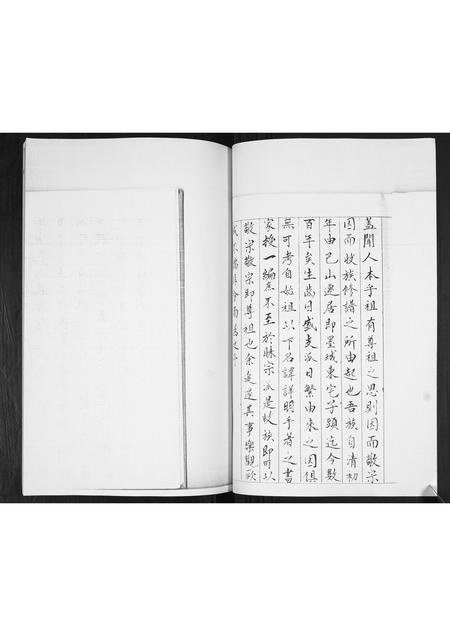 蓋聞人本乎祖有尊祖之思則因而敬宗
因而收族修譜之所由起也吾族自清初
年由巴山遷居即墨城東宅子頭迄今數
百年矣生齒日盛支派日繁由來之因俱
無可考自始祖以下名諱詳明手著之書
家授一編庶不至於昧宗派是收族即可以
敬宗敬宗即尊祖也余追遠其事樂觀厥
成不揣
而為之序